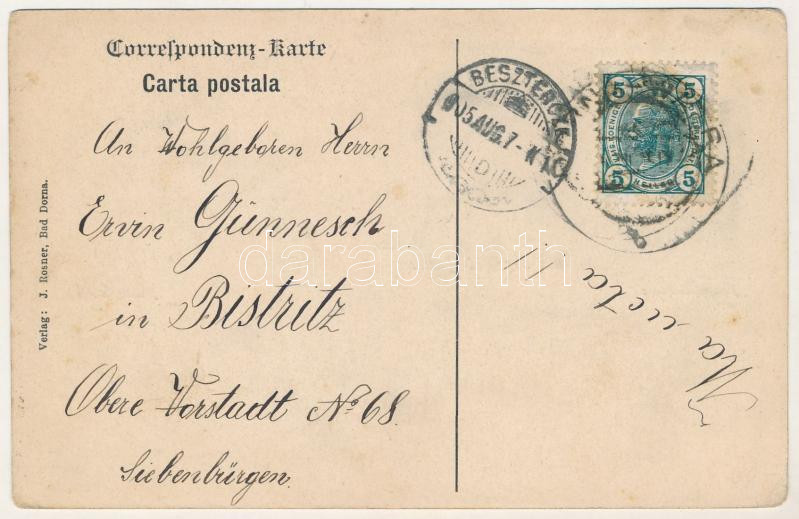 Correspondenz-Karte
Carta postala
An Wohlgeboren Herrn
Ervin Günnesch
in Bistritz
Obere Vorstadt No 68.
Siebenbürgen.
Verlag: J. Rosner, Bad Dorna.
BESZTERCZE
905 AUG. 7
5 5
5 5
darabanth